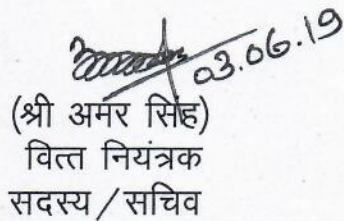 03.06.19
(श्री अमर सिंह)
वित्त नियंत्रक
सदस्य / सचिव